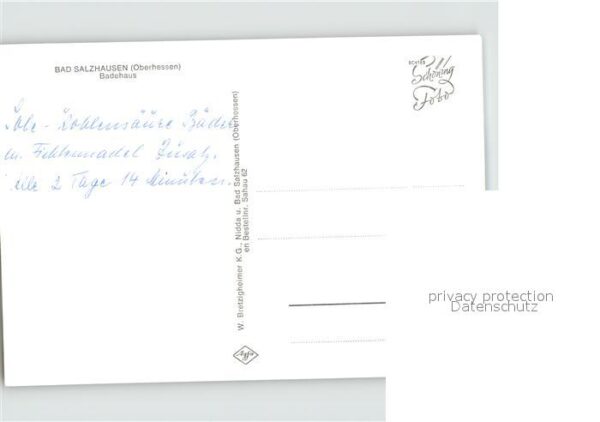 BAD SALZHAUSEN (Oberhessen)
Badehaus
Echtes
Schöning
Foto
Sole-Kohlensäure Bäder
m. Fichtennadel Zusatz.
alle 2 Tage 14 Minuten.
W. Bretzigheimer K.G., Nidda u. Bad Salzhausen (Oberhessen)
en Bestellnr. Sahau 62
Agfa
privacy protection
Datenschutz